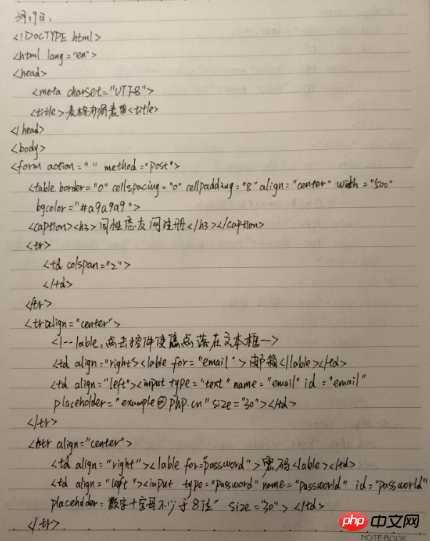 3月19日.
<!DOCTYPE html>
<html lang="en">
<head>
<meta charset="UTF-8">
<title>表格布局表单<title>
</head>
<body>
<form action=" " method="post">
<table border="0" cellspacing="0" cellpadding="8" align="center" width="500"
bgcolor="#a9a9a9">
<caption><h3>同性恋友网注册</h3></caption>
<tr>
<td colspan="2">
</td>
</tr>
<tr align="center">
<!--lable,点击控件使焦点落在文本框-->
<td align="right"><lable for="email">邮箱</lable></td>
<td align="left"><input type="text" name="email" id="email"
placeholder="example@php.cn" size="30"></td>
</tr>
<tr align="center">
<td align="right"><lable for="password">密码<lable></td>
<td align="left"><input type="password" name="password" id="password"
placeholder=数字+字母不少于8位" size="30"></td>
</tr>
NOTEBOOK
php中文网